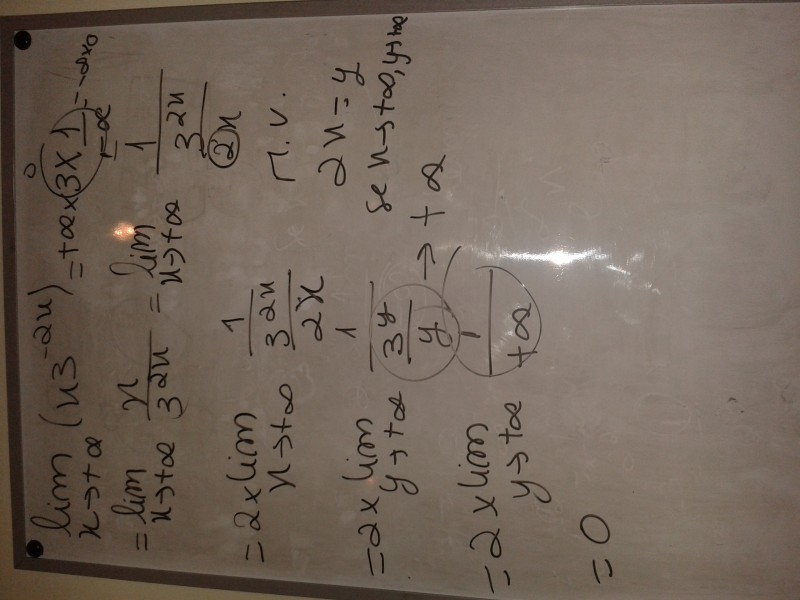 lim x→+∞ (x3^{-2x}) = +∞ × 3 × 1/-∞ = -∞×0
= lim x→+∞ x/3^{2x} = lim x→+∞ 1/(3^{2x}/x)
= 2 × lim x→+∞ 1/(3^{2x}/2x) M.V.
2x = y
se x→+∞, y→+∞
= 2 × lim y→+∞ 1/(3^y/y) → +∞
= 2 × lim y→+∞ 1/+∞
= 0